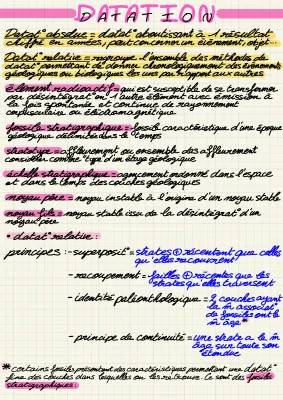 DATATION
Datat° absolue = datat° aboutissant à 1 résultat
chiffré en années, peut concerner un événement, objet...
Datat° relative = regroupe l'ensemble des méthodes de
datat° permettant de donner chronologiquement des événements
géologiques ou biologiques les uns par rapport aux autres
élément radioactif = qui est susceptible de se transformer
par désintégrat° en 1 autre élément avec émission à
la fois spontanée et continue de rayonnement
corpusculaire ou électromagnétique
fossile stratigraphique = fossile caractéristique d'une époque
géologique délimitée dans le temps
stratotype = affleurement ou ensemble des affleurement
considéré comme type d'un étage géologique
échelle stratigraphique = agencement ordonné dans l'espace
et dans le temps des couches géologiques
noyau père = noyau instable à l'origine d'un noyau stable
noyau fils = noyau stable issu de la désintégrat° d'un
noyau père
• datat° relative :
principes : - superposit° = strates ⊕ récentent que celles
qu'elles recouvrent
- recoupement = failles ⊕ récentes que les
strates qu'elles traversent
- identité paléonthologique = 2 couches ayant
la m̂ associat°
de fossiles ont le
m̂ âge*
- principe de continuité = une strate a le m̂
âge sur toute son
étendue
* certains fossiles présentent des caractéristiques permettant une datat°
fine des couches dans lesquelles on les retrouve. Ce sont des fossiles
stratigraphiques.